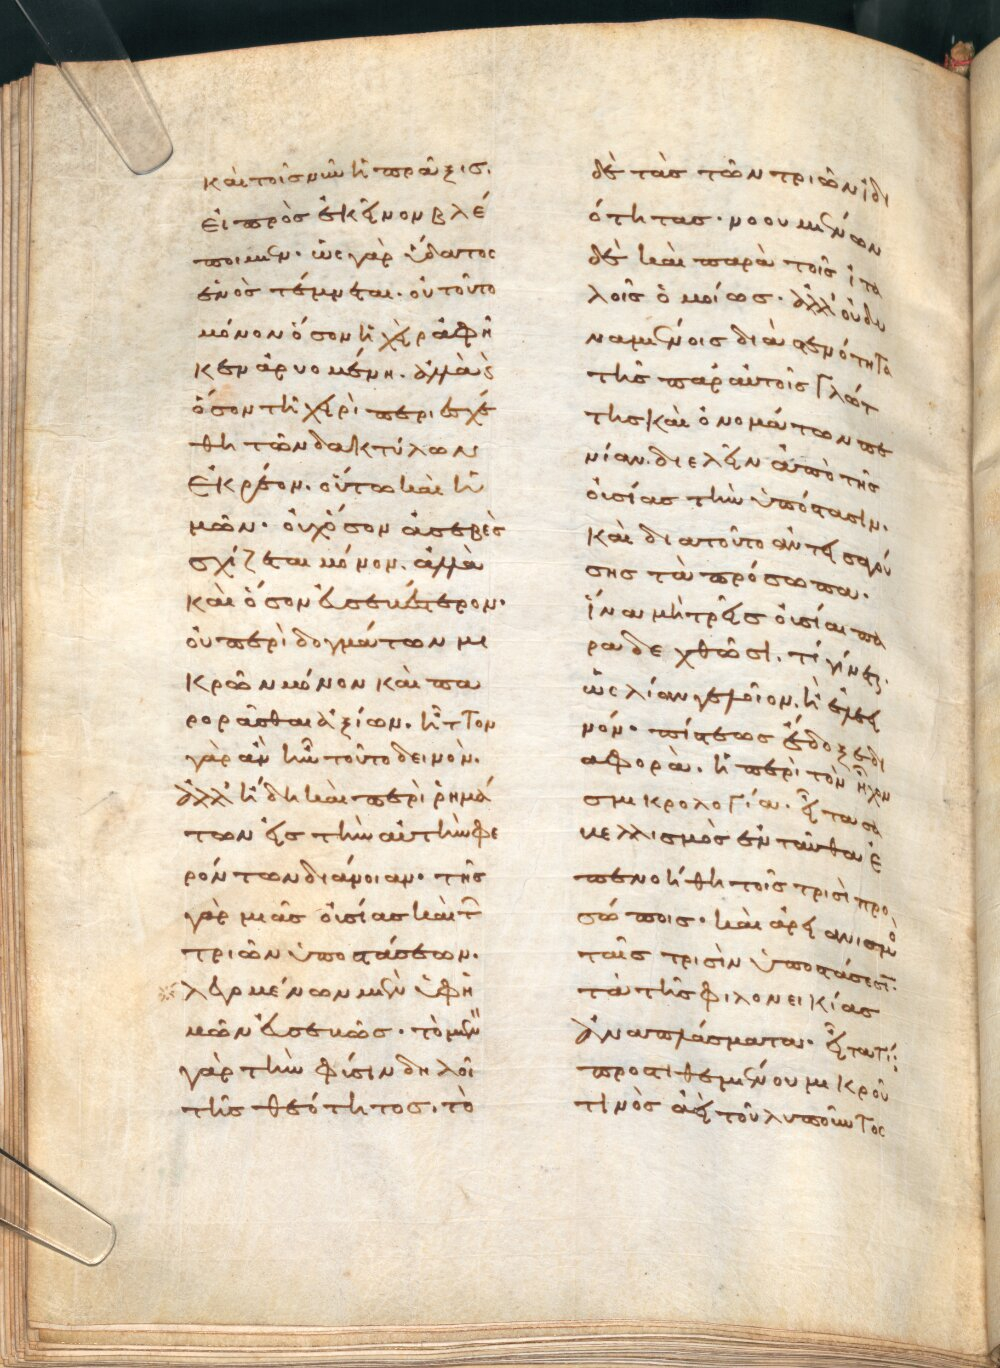 καὶ τοῖς νῦν ἡ πρᾶξις.
εἰ πρὸς ἐκεῖνον βλέ
ποιμεν. ὡς γὰρ ὕδατος
ἑνὸς τέμνεται. οὐ τοῦτο
μόνον ὅσον ἡ χεὶρ ἀφῆ
κεν ἀρυομένη. ἀλλὰ καὶ
ὅσον τῆ χειρὶ περιεσχέ
θη τῶν δακτύλων
ἐκρέον. οὕτω καὶ ἡ
μῶν. οὐχ ὅσον ἀσεβὲς
σχίζεται μόνον. ἀλλὰ
καὶ ὅσον εὐσεβέστερον.
οὐ περὶ δογμάτων μι
κρῶν μόνον καὶ πα
ρορᾶσθαι ἀξίων. ἧττον
γὰρ ἂν ἦν τοῦτο δεινὸν.
ἀλλ' ἤδη καὶ περὶ ῥημά
των εἰς τὴν αὐτὴν φε
ρόντων διάνοιαν. τῆς
γὰρ μιᾶς οὐσίας καὶ τῶν
τριῶν ὑποστάσεων.
λεγομένων μὲν ὑφ' ἡ
μῶν εὐσεβῶς. τὸ μὲν
γὰρ τὴν φύσιν δηλοῖ
τῆς θεότητος. τὸ
δὲ τὰς τῶν τριῶν ἰδι
ότητας. νοουμένων
δὲ καὶ παρὰ τοῖς ἰτα
λοῖς ὁμοίως. ἀλλ' οὐ δυ
ναμένοις διὰ στενότητα
τῆς παρ' αὐτοῖς γλώτ
της καὶ ὀνομάτων πε
νίαν. διελεῖν ἀπὸ τῆς
οὐσίας τὴν ὑπόστασιν.
καὶ διατοῦτο ἀντεισαγού
σης τὰ πρόσωπα.
ἵνα μὴ τρεῖς οὐσίαι πα
ραδεχθῶσι. τί γίνεται.
ὡς λίαν γελοῖον. ἢ ἐλεει
νόν. πίστεως ἔδοξε δι
αφορὰ. ἡ περὶ τὸν ἦχον
σμικρολογία. εἶτα σα
βελλισμὸς ἐνταῦθα ἐ
πενοήθη τοῖς τρισὶ προ
σώποις. καὶ ἀρειανισμὸς
ταῖς τρισὶν ὑποστάσεσι.
τὰ τῆς φιλονεικίας
ἀναπλάσματα. εἶτα τί;
προστιθεμένου μικροῦ
τινὸς ἀεὶ τοῦ λυποῦντος